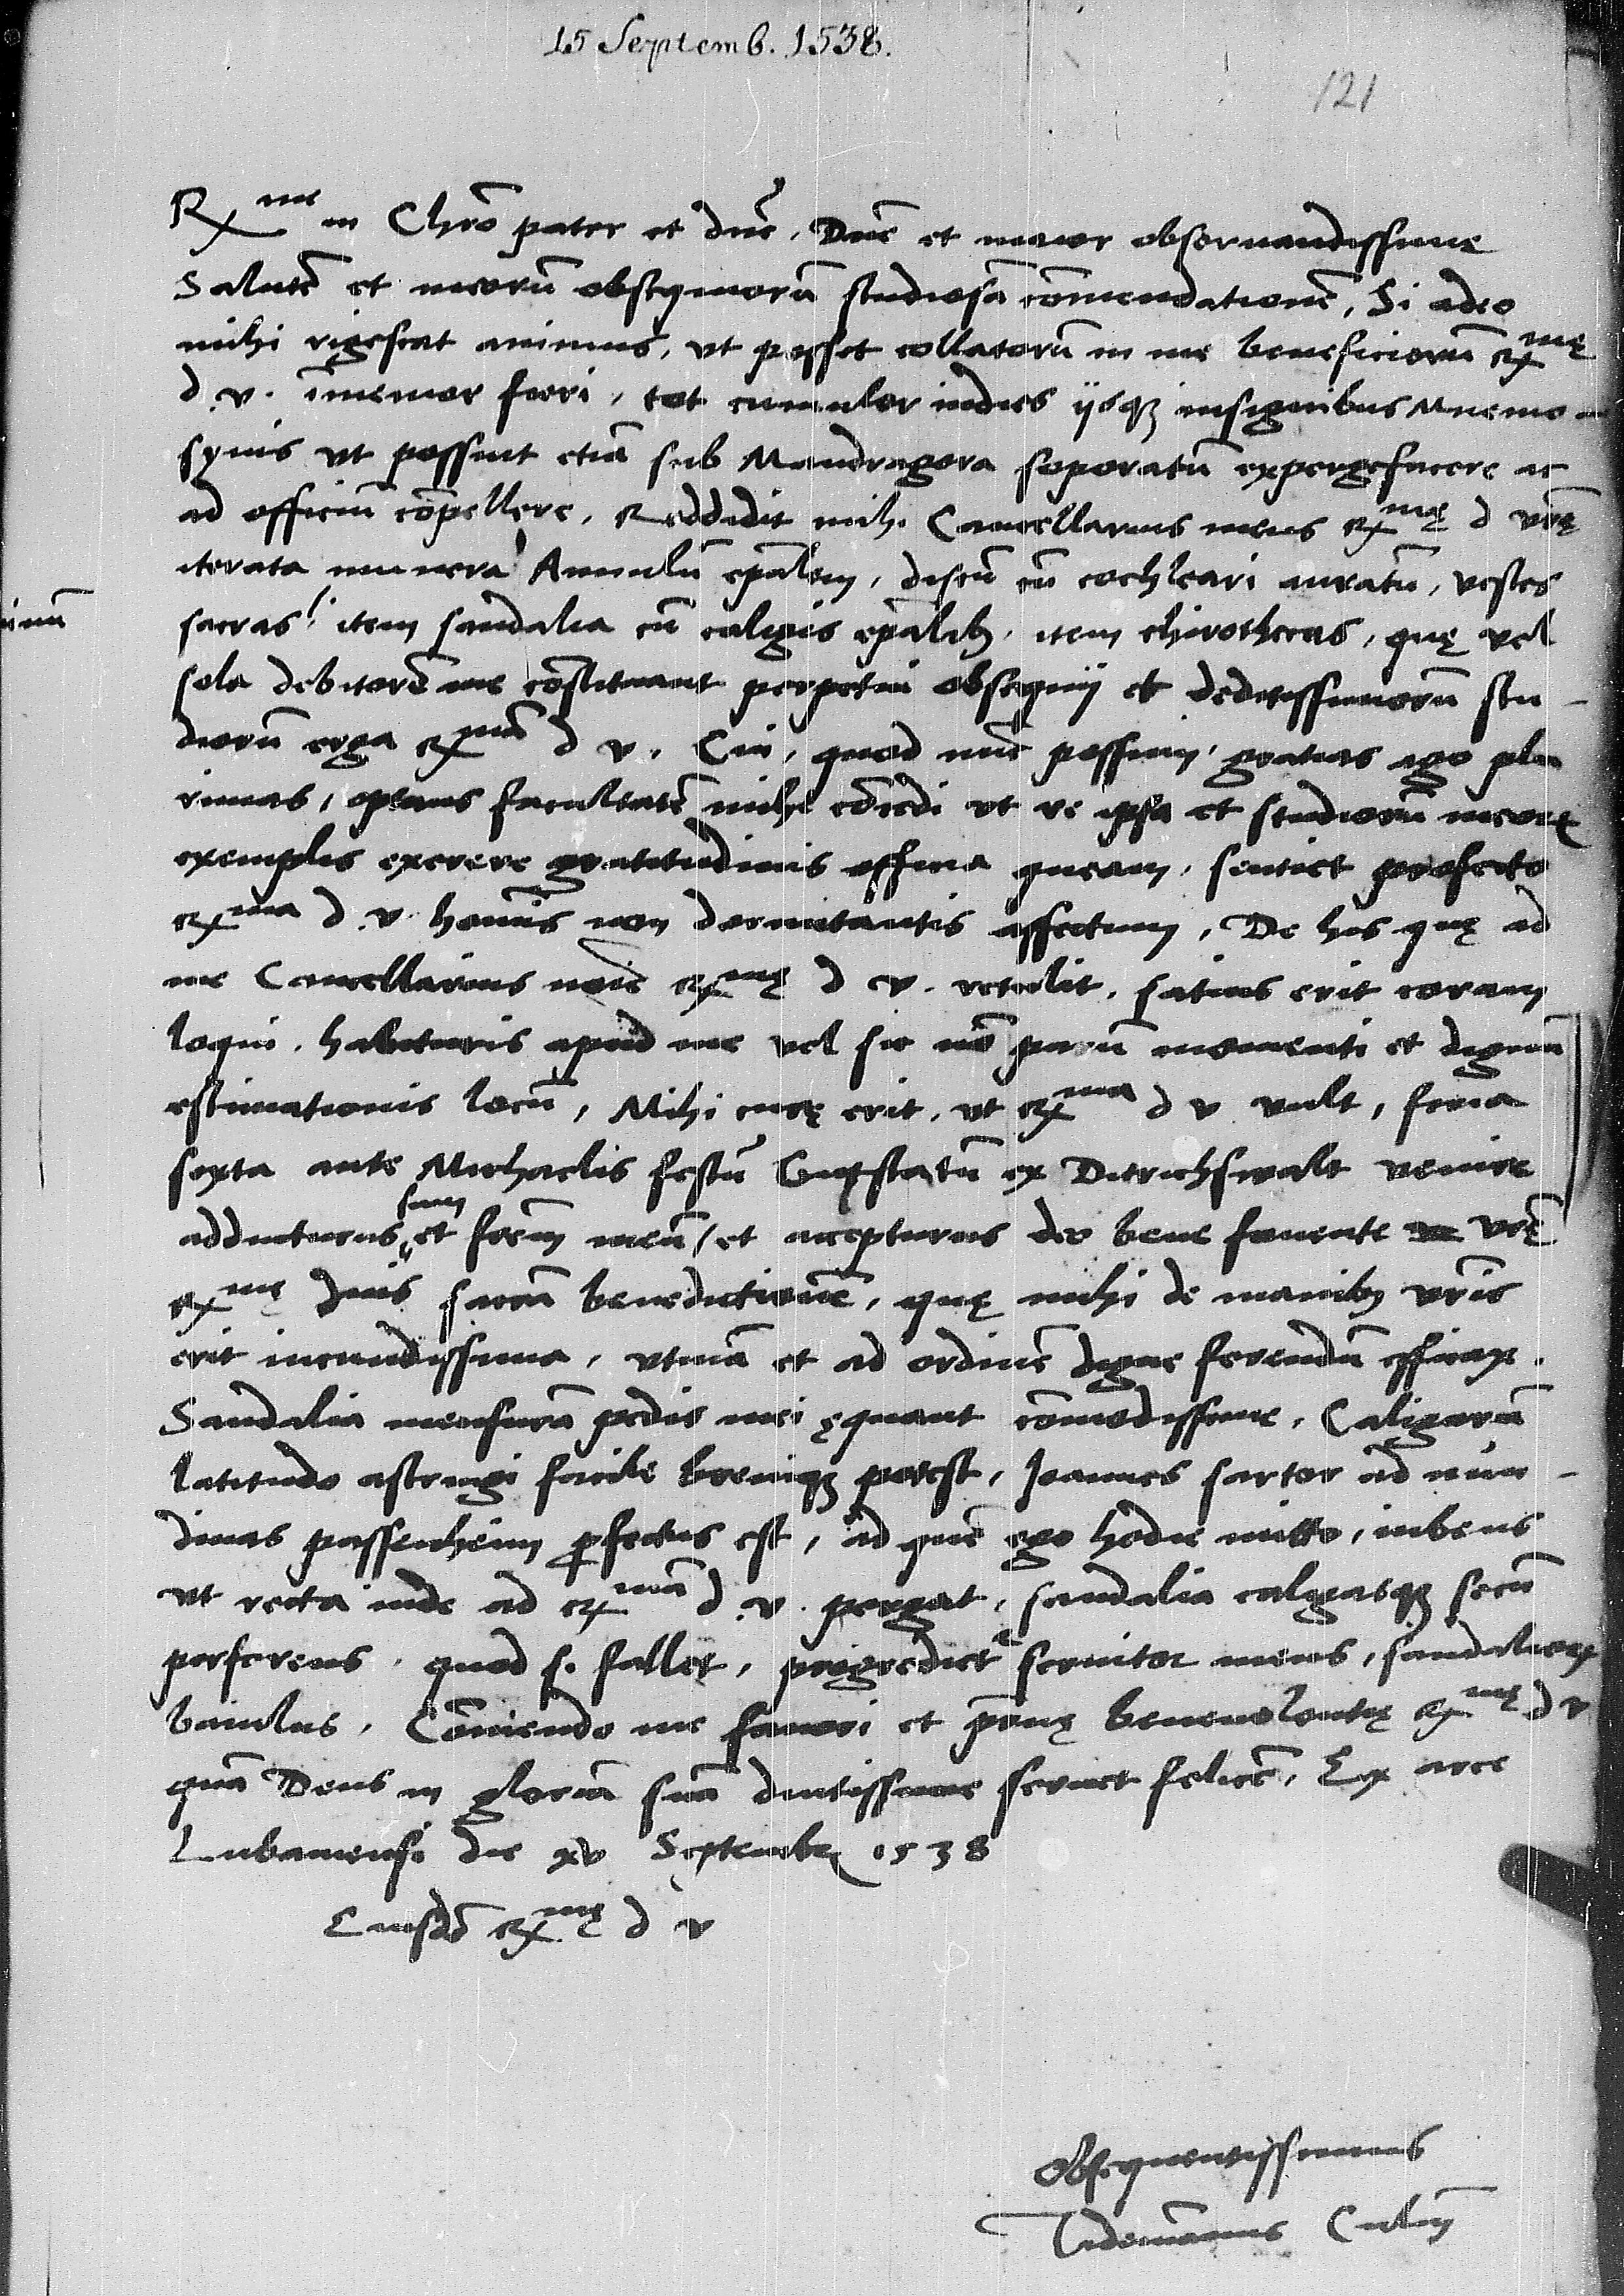 15 Septemb. 1538.
121
Rx^me in Chrō pater et dn̄e, Dn̄e et maior obseruandissime
Salutē et meorū obsequiorū studiosā cōmendationē, Si adeo
mihi rigescat animus, vt posset collatorū in me beneficiorū Rx^mę
d. v. im̄emor fieri, tot cumulor indies ijsqꝫ insignibus Mnemo
synis vt possint etiā sub Mandragora soporatū expergefacere ac
ad officiū cōpellere, Reddidit mihi Cancellarius meus Rx^mę d vrę̄
iterata munera Annulū ep̄alem, discū cū cochleari auratū, vestes
sacras, item sandalia cū caligis ep̄alibꝫ, item chirothecas, quę vel
inū
sola debitorē me cōstituant perpetui obsequij et deditissimorū stu-
diorū erga Rx^mā d v. Cui, quod nūc possum, gratias ago plu
rimas, optans facultatē mihi cōcedi vt re ipsa et studiorū meoꝝ
exemplis exerere gratitudinis officia queam, sentiet profecto
Rx^ma d. v. hoīs non dormitantis affectum, De his quę ad
me Cancellarius noīe Rx^mę d v. retulit, satius erit coram
loqui, habituris apud me vel sic nō parū momenti et dignū
estimationis locū, Mihi curę erit, vt Rx^ma d v vult, feria
sexta ante Michaelis festū Gutstatū ex Ditrichswalt venire
adducturus sum et frēm meū, et accepturus deo bene fauente vrę̄
Rx^mę Dn̄is sacrā benedictionē, quę mihi de manibꝫ vris̄
erit iucundissima, vtinā et ad ordinē digne ferendū efficax.
Sandalia mensurā pedis mei ęquant cōmodissime, Caligarū
latitudo astringi facile breuiqꝫ potest, Joannes sartor ad nun-
dinas passenheim ꝓfectus est, ad quē ego hodie mitto, iubens
vt recta inde ad Rx^mā d. v. pergat, sandalia caligasqꝫ secū
perferens, quod si fallet, progredietr̄ seruitor meus, sandalioꝝ
baiulus. Cōmendo me fauori et pr̄nę beneuolentię Rx^mę d v
quā Deus in gloriā suā diutissime seruet felicē, Ex arce
Lubauiensi die xv Septembꝝ 1538
Eiusdē Rx^mę d v
Obsequentissimus
Tidemannus Culm̄